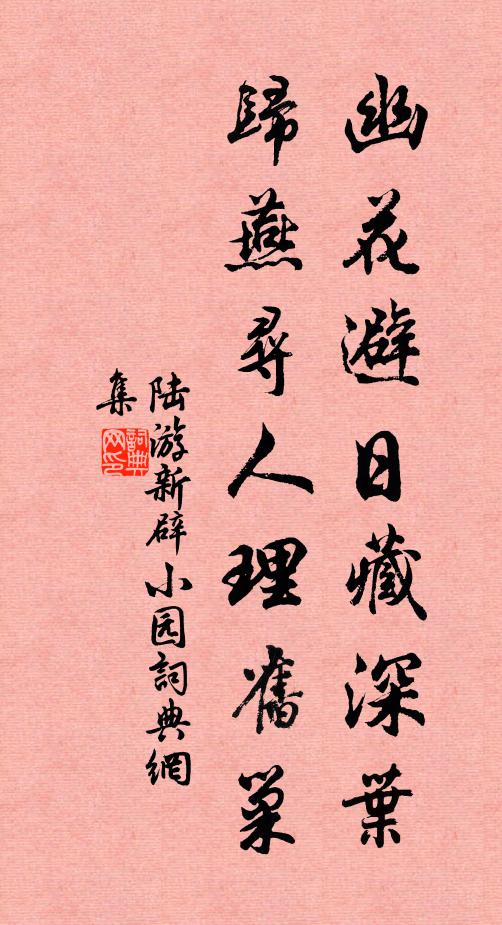 幽花避日藏深葉
歸燕尋人理舊巢
陆游新辟小园詞典網
集
詞典网印